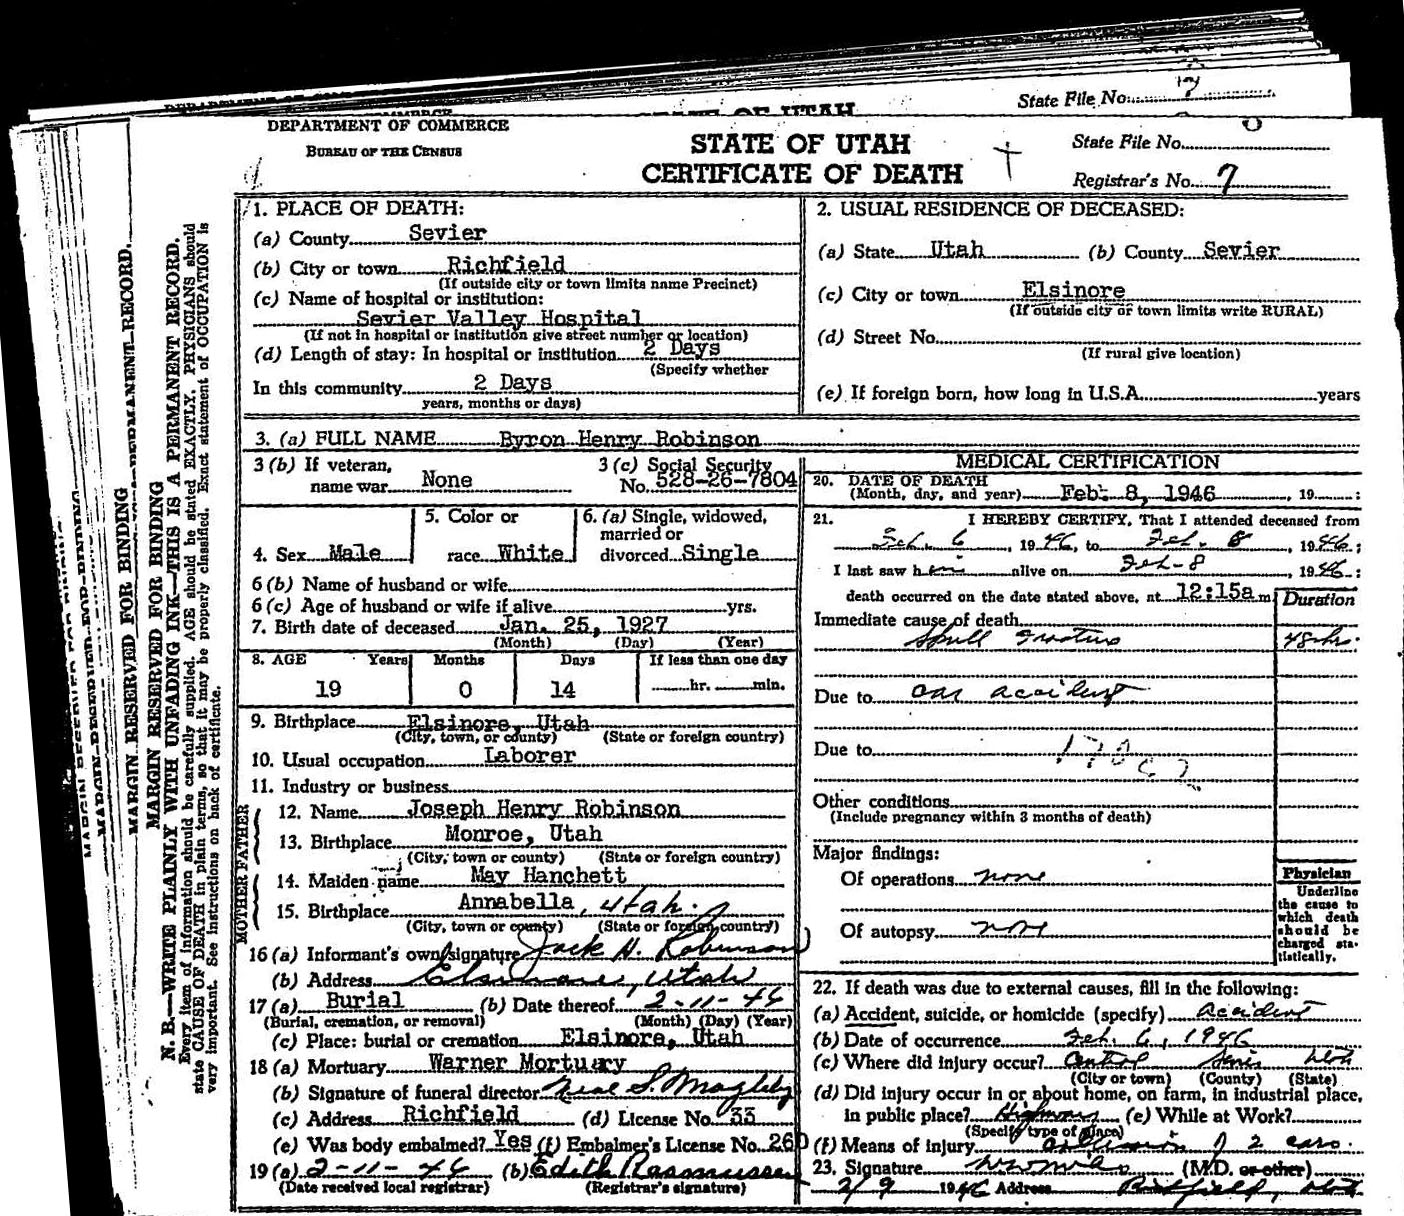 State File No. 7
DEPARTMENT OF COMMERCE
BUREAU OF THE CENSUS
STATE OF UTAH
CERTIFICATE OF DEATH
State File No.
Registrar's No. 7
1. PLACE OF DEATH:
(a) County Sevier
(b) City or town Richfield
(If outside city or town limits name Precinct)
(c) Name of hospital or institution:
Sevier Valley Hospital
(If not in hospital or institution give street number or location)
(d) Length of stay: In hospital or institution 2 Days
(Specify whether
In this community 2 Days
years, months or days)
2. USUAL RESIDENCE OF DECEASED:
(a) State Utah (b) County Sevier
(c) City or town Elsinore
(If outside city or town limits write RURAL)
(d) Street No.
(If rural give location)
(e) If foreign born, how long in U.S.A. years
3. (a) FULL NAME Byron Henry Robinson
3 (b) If veteran, name war None
3 (c) Social Security No. 528-26-7804
4. Sex Male
5. Color or race White
6. (a) Single, widowed, married or divorced Single
6 (b) Name of husband or wife
6 (c) Age of husband or wife if alive yrs.
7. Birth date of deceased Jan. 25, 1927
(Month) (Day) (Year)
8. AGE Years Months Days If less than one day
19 0 14 hr. min.
9. Birthplace Elsinore, Utah
(City, town, or county) (State or foreign country)
10. Usual occupation Laborer
11. Industry or business
FATHER
12. Name Joseph Henry Robinson
13. Birthplace Monroe, Utah
(City, town or county) (State or foreign country)
MOTHER
14. Maiden name May Hanchett
15. Birthplace Annabella, Utah.
(City, town or county) (State or foreign country)
16 (a) Informant's own signature Jack H. Robinson
(b) Address Elsinore, Utah
17 (a) Burial (b) Date thereof 2-11-46
(Burial, cremation, or removal) (Month) (Day) (Year)
(c) Place: burial or cremation Elsinore, Utah
18 (a) Mortuary Warner Mortuary
(b) Signature of funeral director Neal S. Magleby
(c) Address Richfield (d) License No. 33
(e) Was body embalmed? Yes (f) Embalmer's License No. 260
19 (a) 2-11-46 (b) Edith Rasmussen
(Date received local registrar) (Registrar's signature)
MEDICAL CERTIFICATION
20. DATE OF DEATH
(Month, day, and year) Feb. 8, 1946, 19 :
21. I HEREBY CERTIFY, That I attended deceased from
Feb. 6, 1946, to Feb. 8, 1946;
I last saw him alive on Feb-8, 1946:
death occurred on the date stated above, at 12:15a m.
Duration
Immediate cause of death
Skull Fracture 48 hr.
Due to car accident
Due to 170
Other conditions
(Include pregnancy within 3 months of death)
Major findings:
Of operations none
Of autopsy none
Physician
Underline
the cause to
which death
should be
charged sta-
tistically.
22. If death was due to external causes, fill in the following:
(a) Accident, suicide, or homicide (specify) Accident
(b) Date of occurrence Feb. 6, 1946
(c) Where did injury occur? Central Sevier Utah
(City or town) (County) (State)
(d) Did injury occur in or about home, on farm, in industrial place,
in public place? Highway (e) While at Work?
(Specify type of place)
(f) Means of injury collision of 2 cars.
23. Signature (M.D. or other)
2/9 1946 Address Richfield, Utah
MARGIN RESERVED FOR BINDING
MARGIN RESERVED FOR BINDING
N. B.—WRITE PLAINLY WITH UNFADING INK—THIS IS A PERMANENT RECORD.
Every item of information should be carefully supplied. AGE should be stated EXACTLY. PHYSICIANS should
state CAUSE OF DEATH in plain terms, so that it may be properly classified. Exact statement of OCCUPATION is
very important. See instructions on back of certificate.